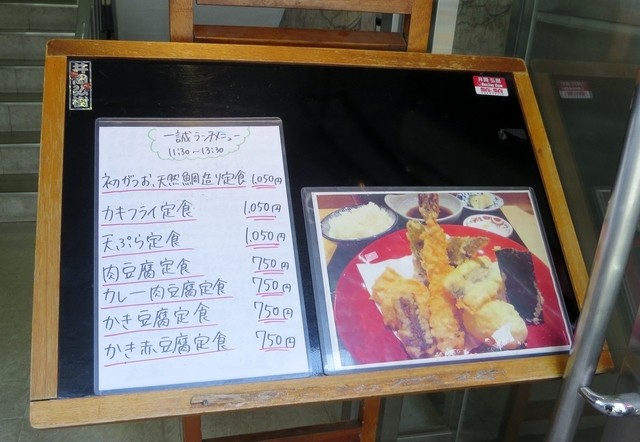 一誠ランチメニュー
11:30～13:30
初がつお、天然鯛造り定食 1,050円
カキフライ定食 1,050円
天ぷら定食 1,050円
肉豆腐定食 750円
カレー肉豆腐定食 750円
かき豆腐定食 750円
かき赤豆腐定食 750円